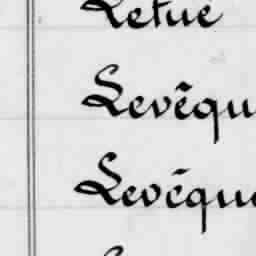 Letué
Levêqu
Levéqu